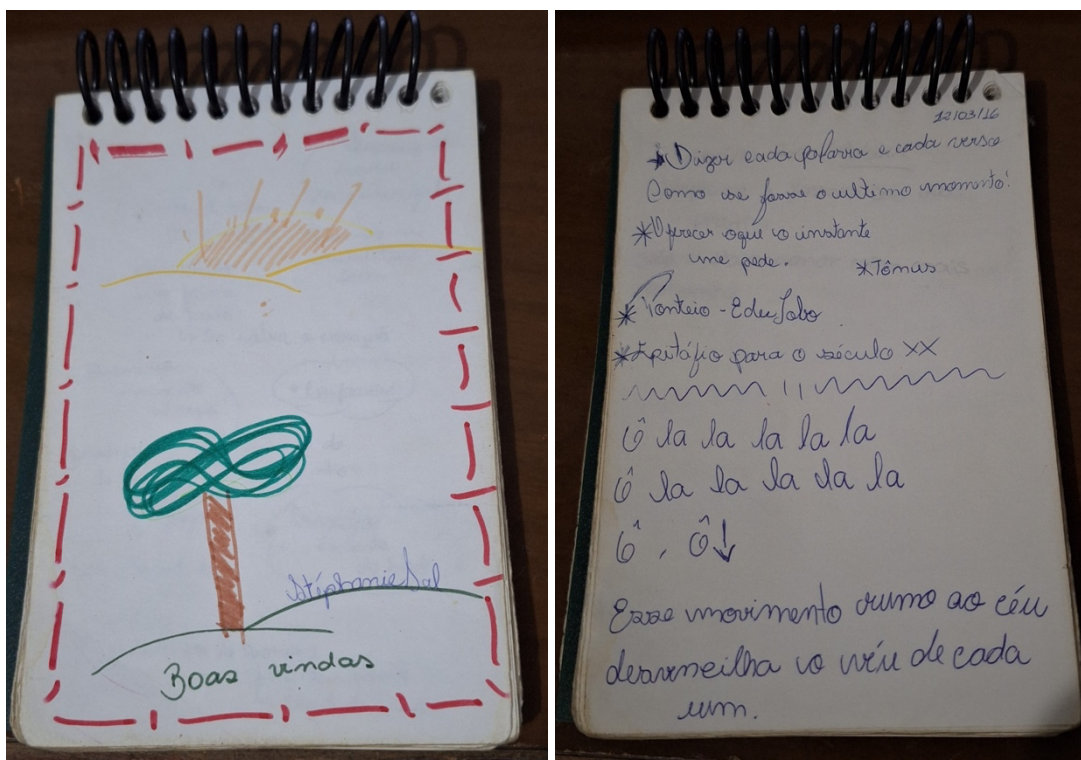 Stéphanie Sal
Boas vindas
12/03/16
* Dizer cada palavra e cada verso
Como se fosse o ultimo momento!
* Oferecer oque o instante
me pede.
* Tônus
* Ponteio - Edu Lobo
* Epitáfio para o século XX
Ô la la la la la
Ô la la la la la
Ô, Ô↓
Esse movimento rumo ao céu
desarmeilha o véu de cada
um.